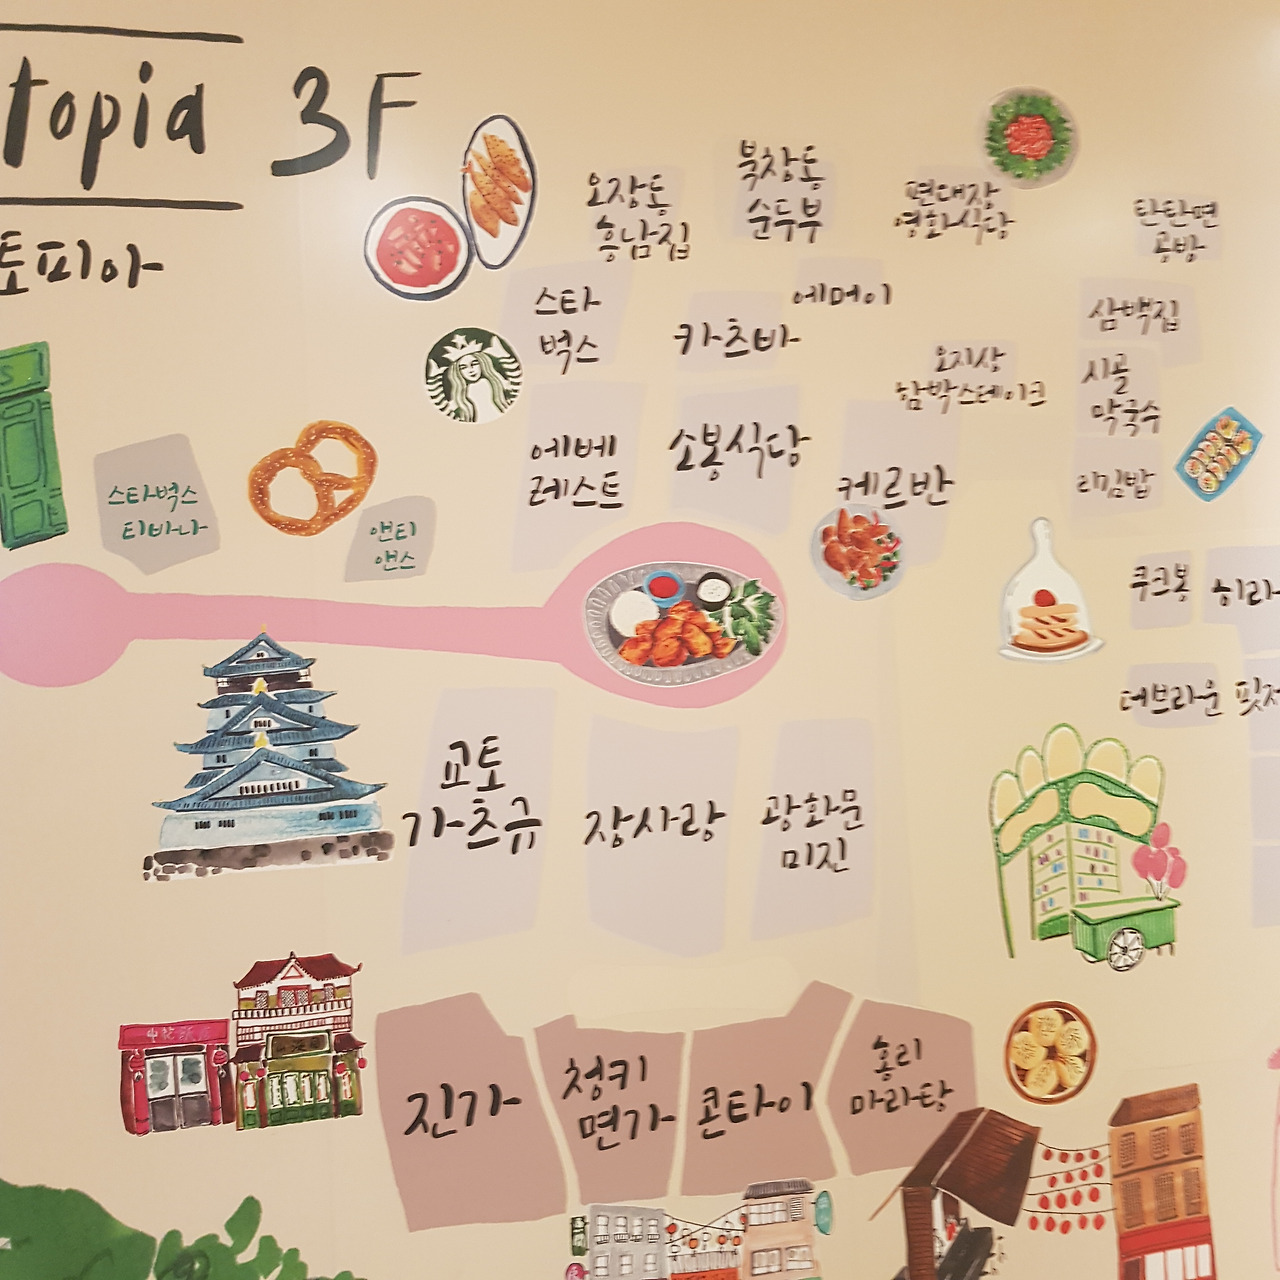 topia 3F
토피아
오장동
흥남집
북창동
순두부
편대장
영화식당
탄탄면
공방
스타
벅스
카츠바
에머이
삼백집
오지상
함박스테이크
시골
막국수
에베
레스트
소봉식당
케르반
리김밥
스타벅스
티바나
앤티
앤스
쿠크봉
히라
더브라운
핏제
교토
가츠규
장사랑
광화문
미진
진가
청키
면가
콘타이
홍리
마라탕